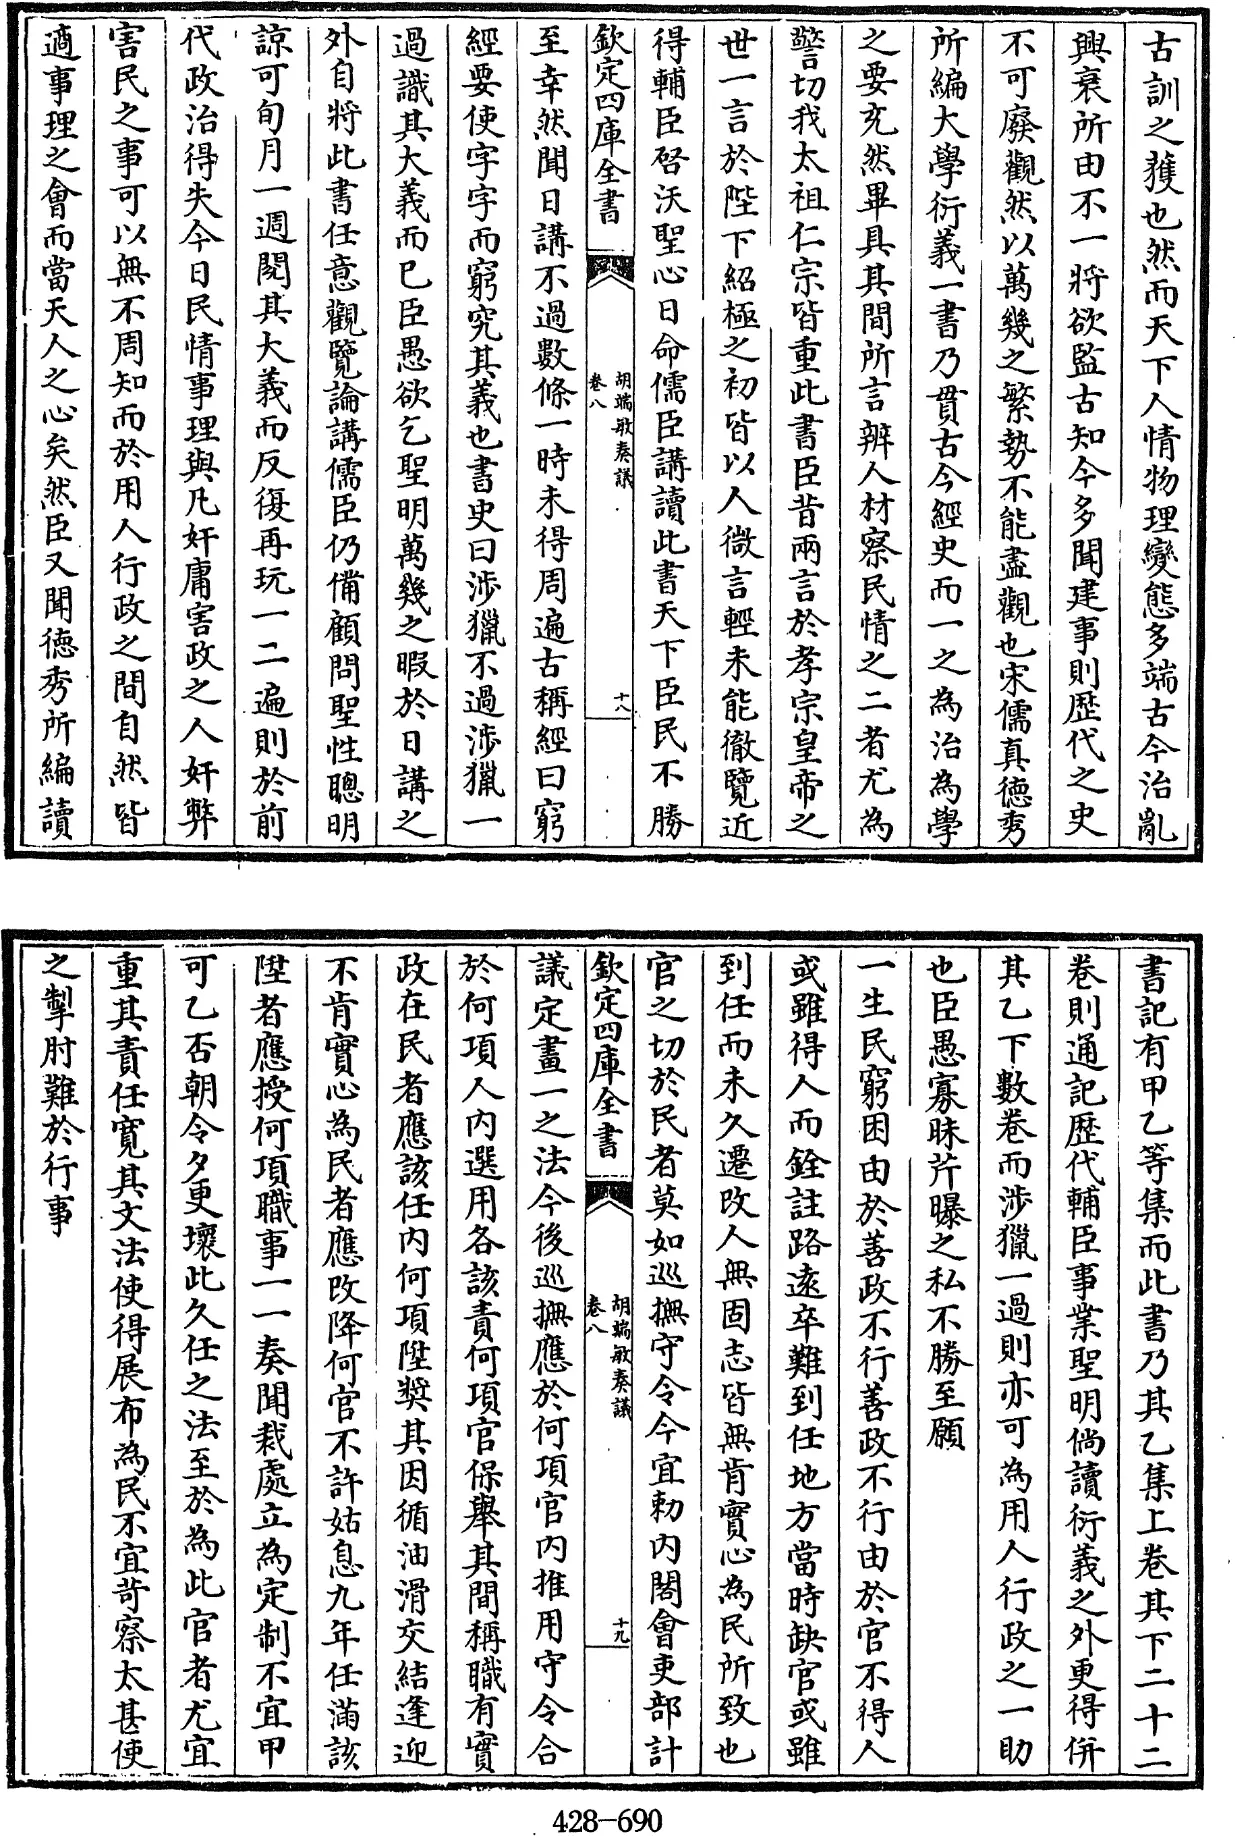 古訓之獲也然而天下人情物理變態多端古今治亂
興衰所由不一將欲監古知今多聞建事則歴代之史
不可廢觀然以萬幾之繁勢不能盡觀也宋儒真德秀
所編大學衍義一書乃貫古今經史而一之為治為學
之要充然畢具其間所言辨人材察民情之二者尤為
警切我太祖仁宗皆重此書臣昔兩言於孝宗皇帝之
世一言於陛下紹極之初皆以人微言輕未能徹覽近
得輔臣啓沃聖心日命儒臣講讀此書天下臣民不勝
欽定四庫全書
胡端敏奏議
卷八
十八
至幸然聞日講不過數條一時未得周遍古稱經曰窮
經要使字字而窮究其義也書史曰涉獵不過涉獵一
過識其大義而已臣愚欲乞聖明萬幾之暇於日講之
外自將此書任意觀覽論講儒臣仍備顧問聖性聰明
諒可旬月一週閱其大義而反復再玩一二遍則於前
代政治得失今日民情事理與凡奸庸害政之人奸弊
害民之事可以無不周知而於用人行政之間自然皆
適事理之會而當天人之心矣然臣又聞德秀所編讀
書記有甲乙等集而此書乃其乙集上卷其下二十二
卷則通記歴代輔臣事業聖明倘讀衍義之外更得併
其乙下數卷而涉獵一過則亦可為用人行政之一助
也臣愚寡昧芹曝之私不勝至願
一生民窮困由於善政不行善政不行由於官不得人
或雖得人而銓註路逺卒難到任地方當時缺官或雖
到任而未久遷改人無固志皆無肯實心為民所致也
官之切於民者莫如巡撫守令今宜勅内閣會吏部計
欽定四庫全書
胡端敏奏議
卷八
十九
議定畫一之法今後巡撫應於何項官内推用守令合
於何項人内選用各該責何項官保舉其間稱職有實
政在民者應該任内何項陞獎其因循油滑交結逢迎
不肯實心為民者應改降何官不許姑息九年任滿該
陞者應授何項職事一一奏聞裁處立為定制不宜甲
可乙否朝令夕更壞此久任之法至於為此官者尤宜
重其責任寛其文法使得展布為民不宜苛察太甚使
之掣肘難於行事
428-690